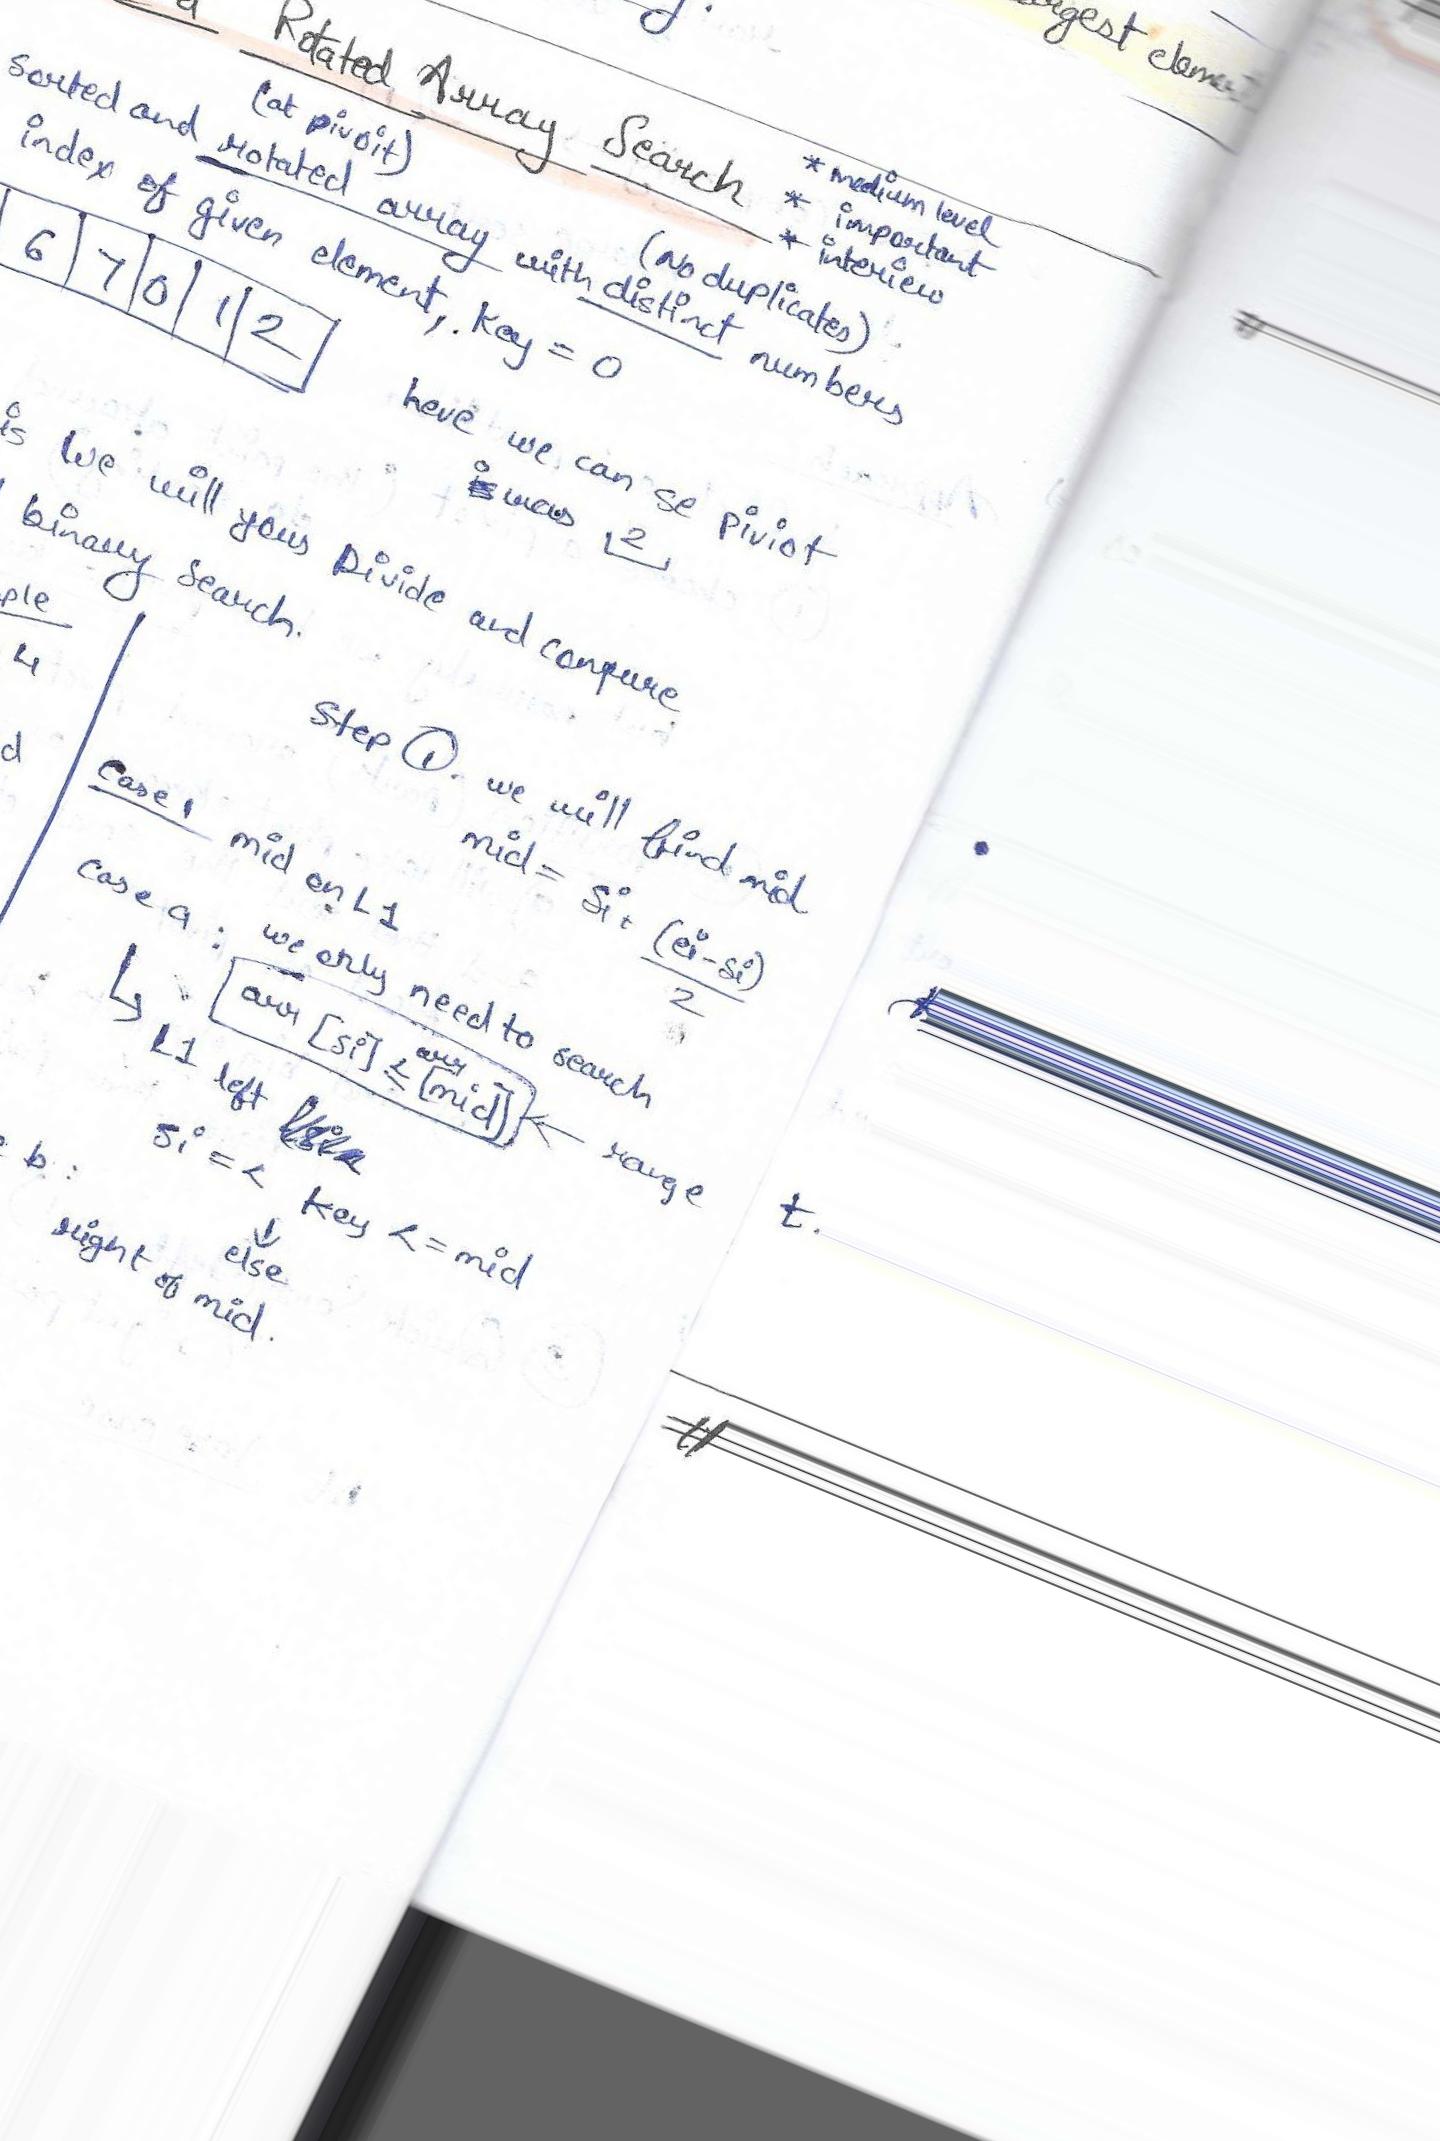 largest element
Rotated Array Search
* medium level
* important
* interiew
(at pivoit)
sorted and rotated array with distinct numbers
(no duplicates)
index of given element, Key = 0
6 7 0 1 2
here we can se piviot
is was 2
is we will yous Divide and Conpure
binary search.
ple
4
d
Step ①. we will find mid
mid = Si + (ei-si)/2
Case 1 mid on L1
Case a : we only need to search
arr [si] ≤ arr [mid] ← range
L1 left
b : si = < Key <= mid
↓
else
right of mid.
t.